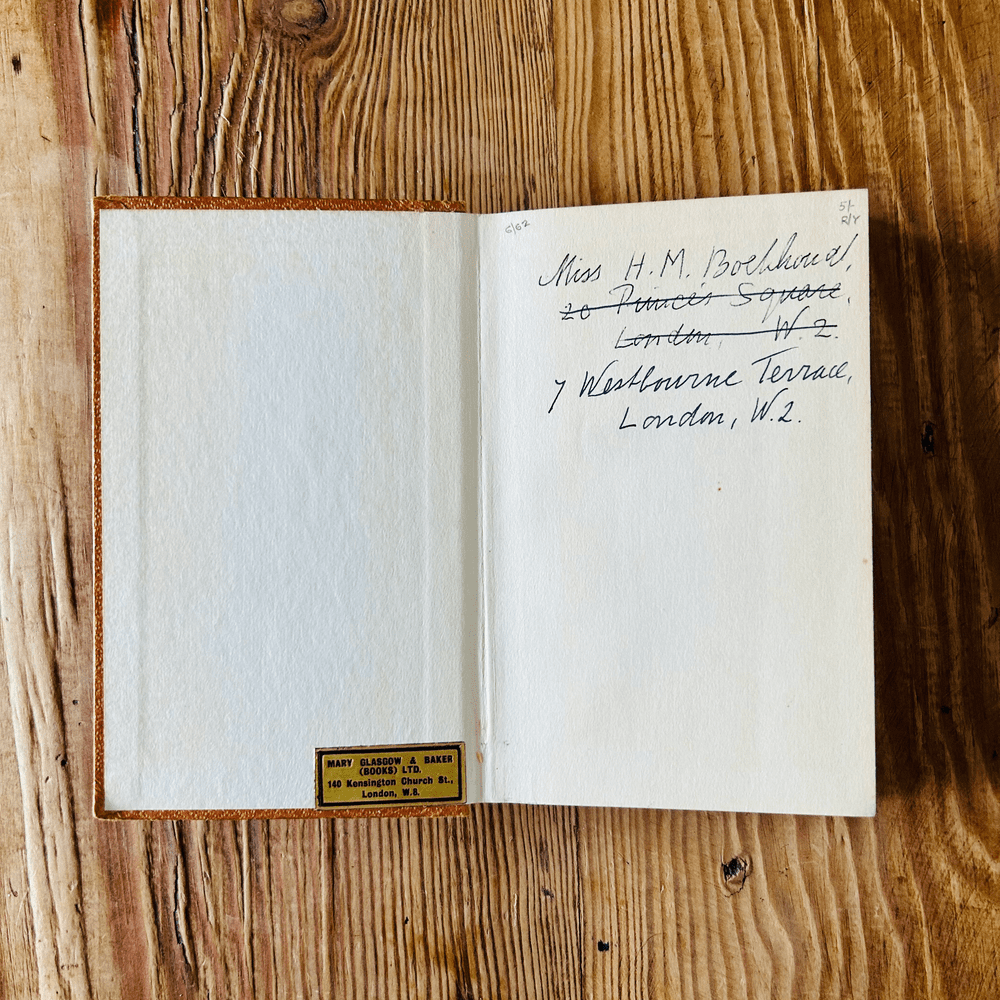 6/62
5/-
R/Y
Miss H. M. Boekhoud,
20 Princes Square,
London, W. 2.
7 Westbourne Terrace,
London, W.2.
MARY GLASGOW & BAKER
(BOOKS) LTD.
140 Kensington Church St.,
London, W.8.